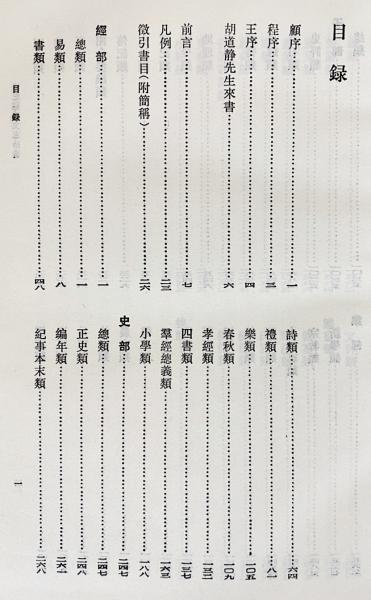 目录
顧序……一
程序……三
王序……四
胡道静先生來書……六
前言……七
凡例……二三
徵引書目(附簡稱)……二六
經部……一
總類……一
易類……八
書類……四八
詩類……六四
禮類……八一
樂類……一〇五
春秋類……一〇九
孝經類……一三二
四書類……一三七
羣經總義類……一六三
小學類……一八八
史部……二四七
總類……二四七
正史類……二四八
編年類……二六一
紀事本末類……二六八
目錄
一